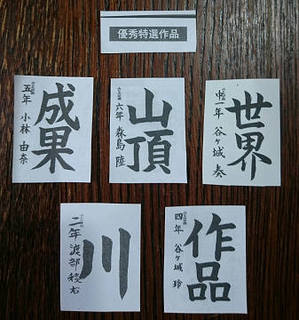 優秀特選作品
世界
中一年 谷ヶ城 奏
山頂
六年 森島 陸
成果
五年 小林 由奈
作品
四年 谷ヶ城 玲
川
二年 渡部